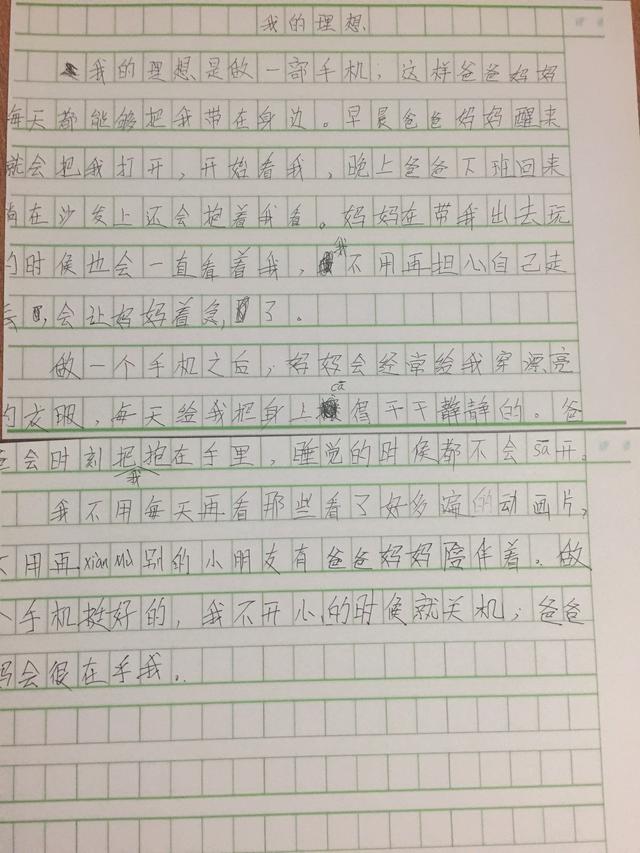 我的理想
我的理想是做一部手机；这样爸爸妈妈
每天都能够把我带在身边。早晨爸爸妈妈醒来
就会把我打开，开始看我，晚上爸爸下班回来
尚在沙发上还会抱着我看。妈妈在带我出去玩
的时候也会一直看着我，我不用再担心自己走
丢，会让妈妈着急，了。
做一个手机之后，妈妈会经常给我穿漂亮
的衣服，每天给我把身上cā得干干静静的。爸
爸会时刻把我抱在手里，睡觉的时候都不会sā开。
我不用每天再看那些看了好多遍的动画片，
不用再xiàn mù别的小朋友有爸爸妈妈陪伴着。做
个手机挺好的，我不开心的时候就关机；爸爸
妈会很在乎我。